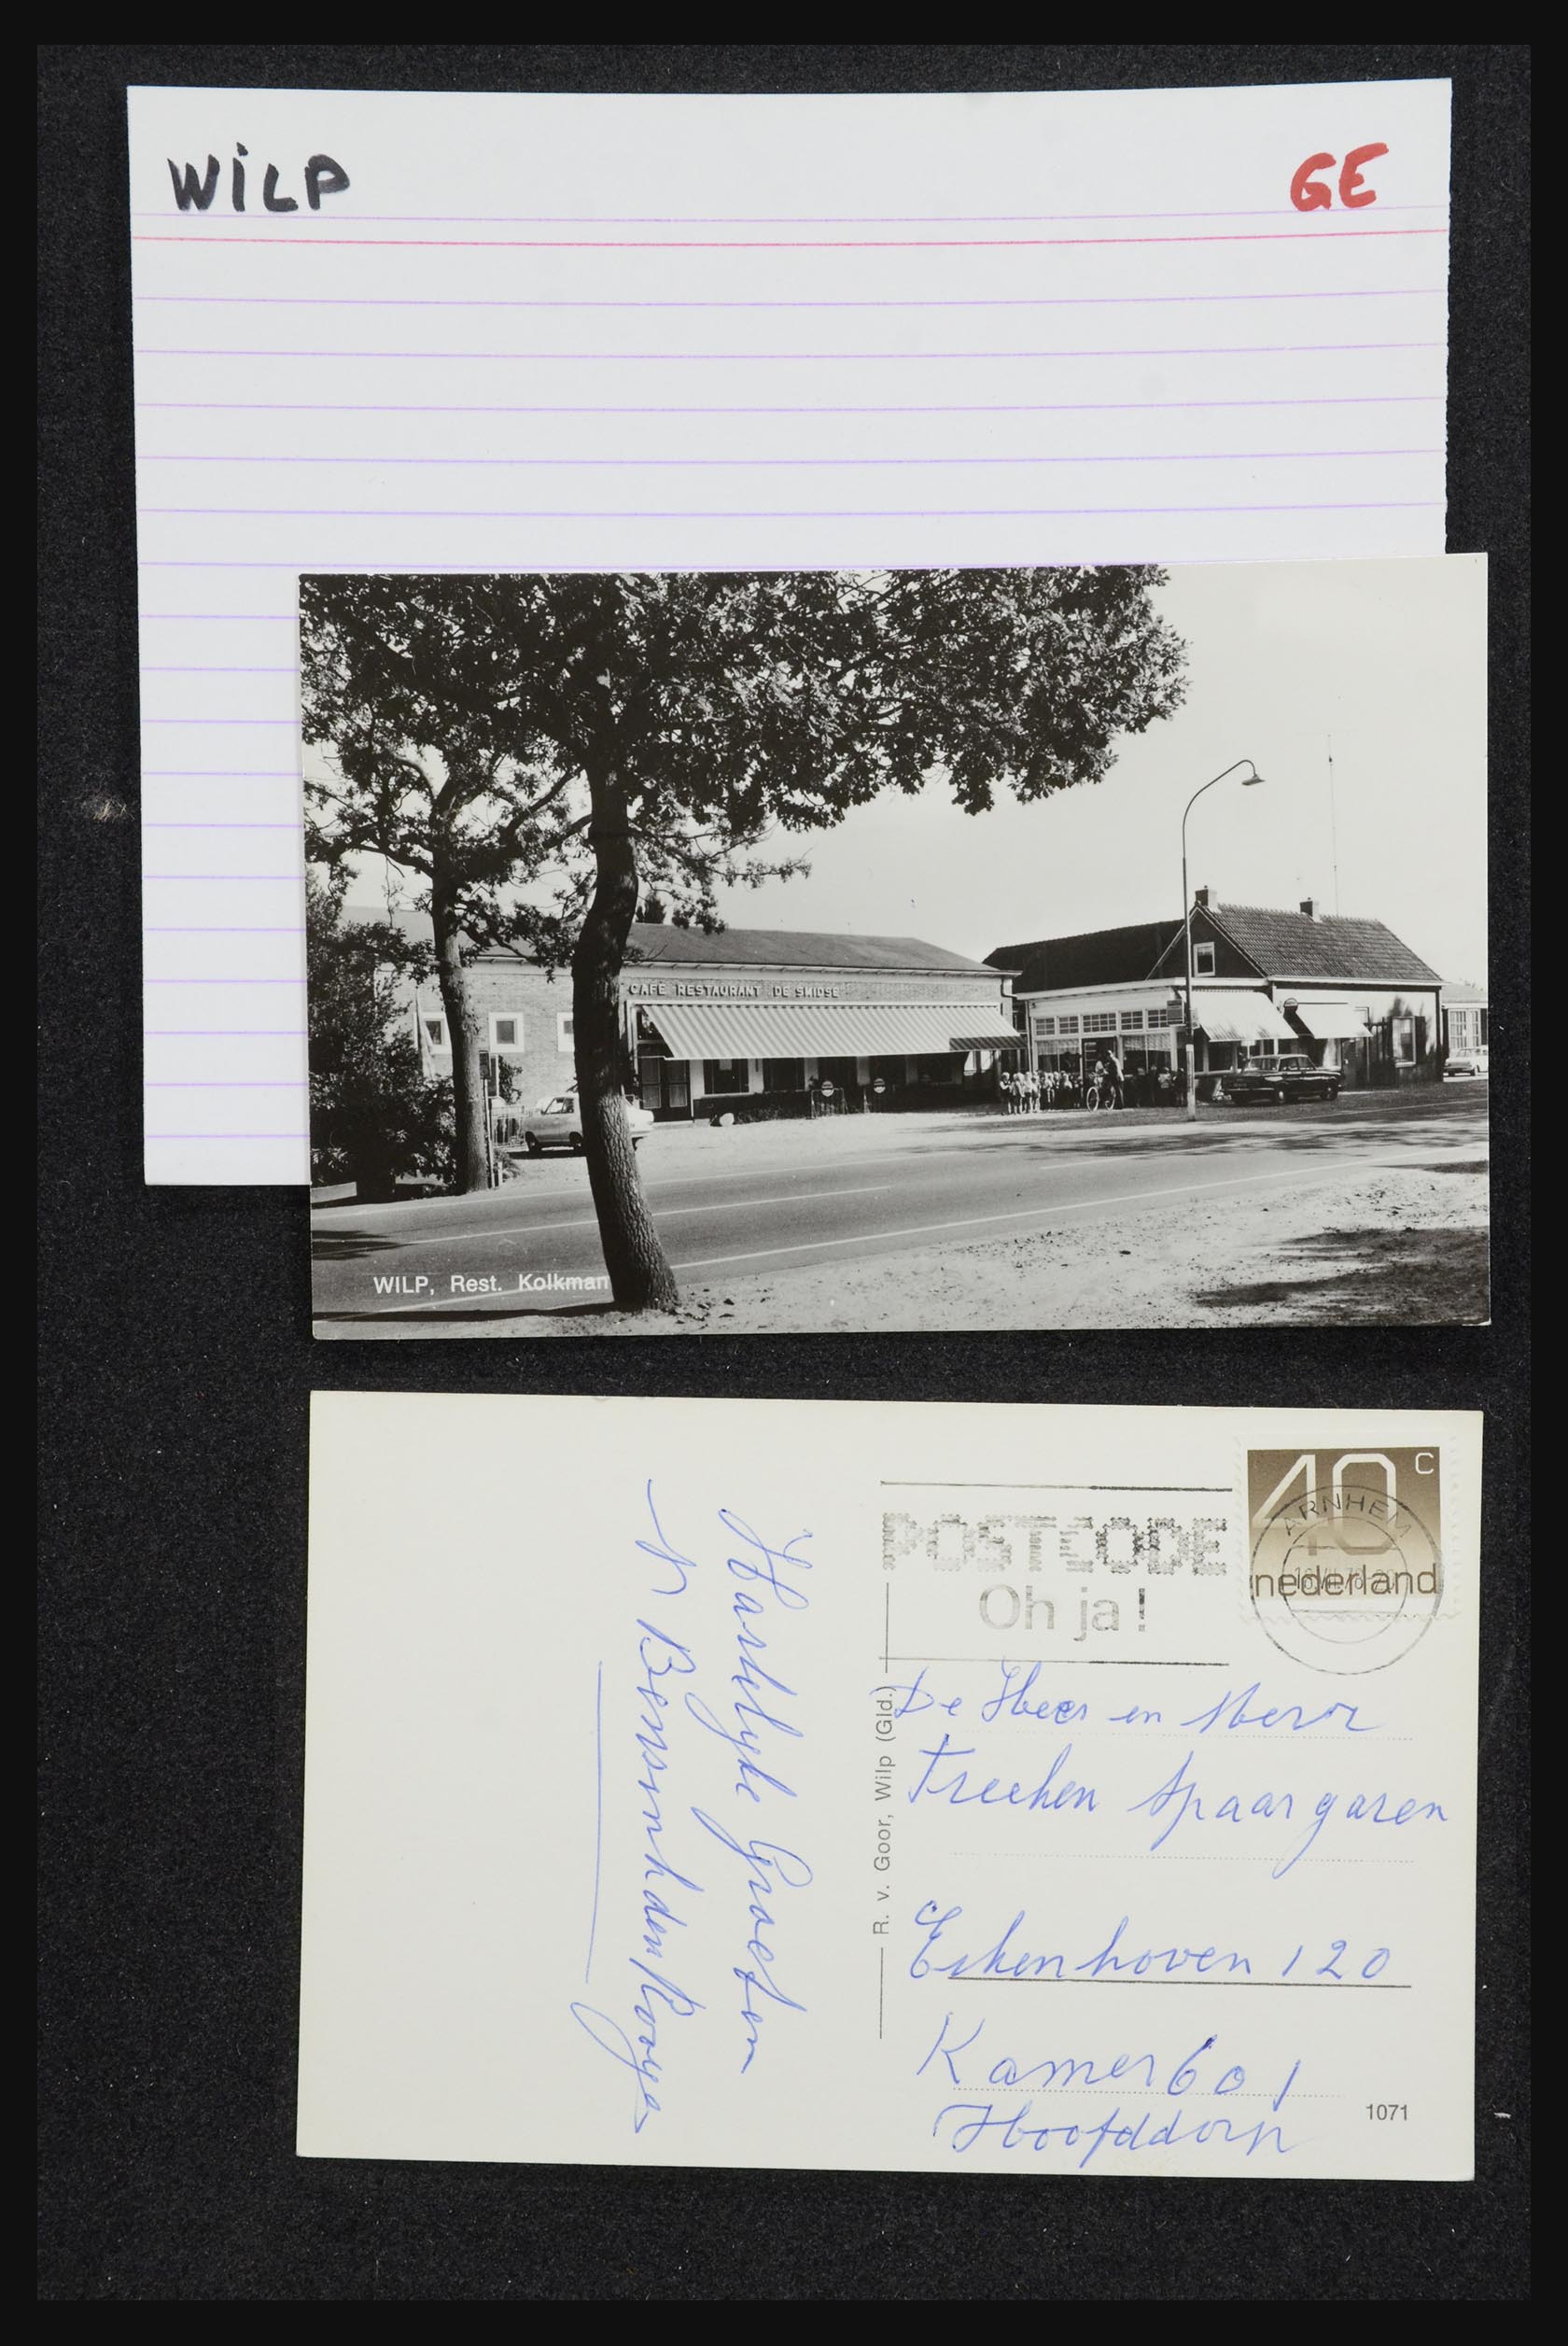 WiLP
GE
CAFÉ RESTAURANT DE SMIDSE
WILP, Rest. Kolkman
40 c
nederland
ARNHEM
POSTCODE
Oh ja!
R. v. Goor, Wilp (Gld.)
De Heer en Mevr
Treehen Spaargaren
Eikenhoven 120
Kamer 601
Hoofddorp
1071
Hartelyke Groeten